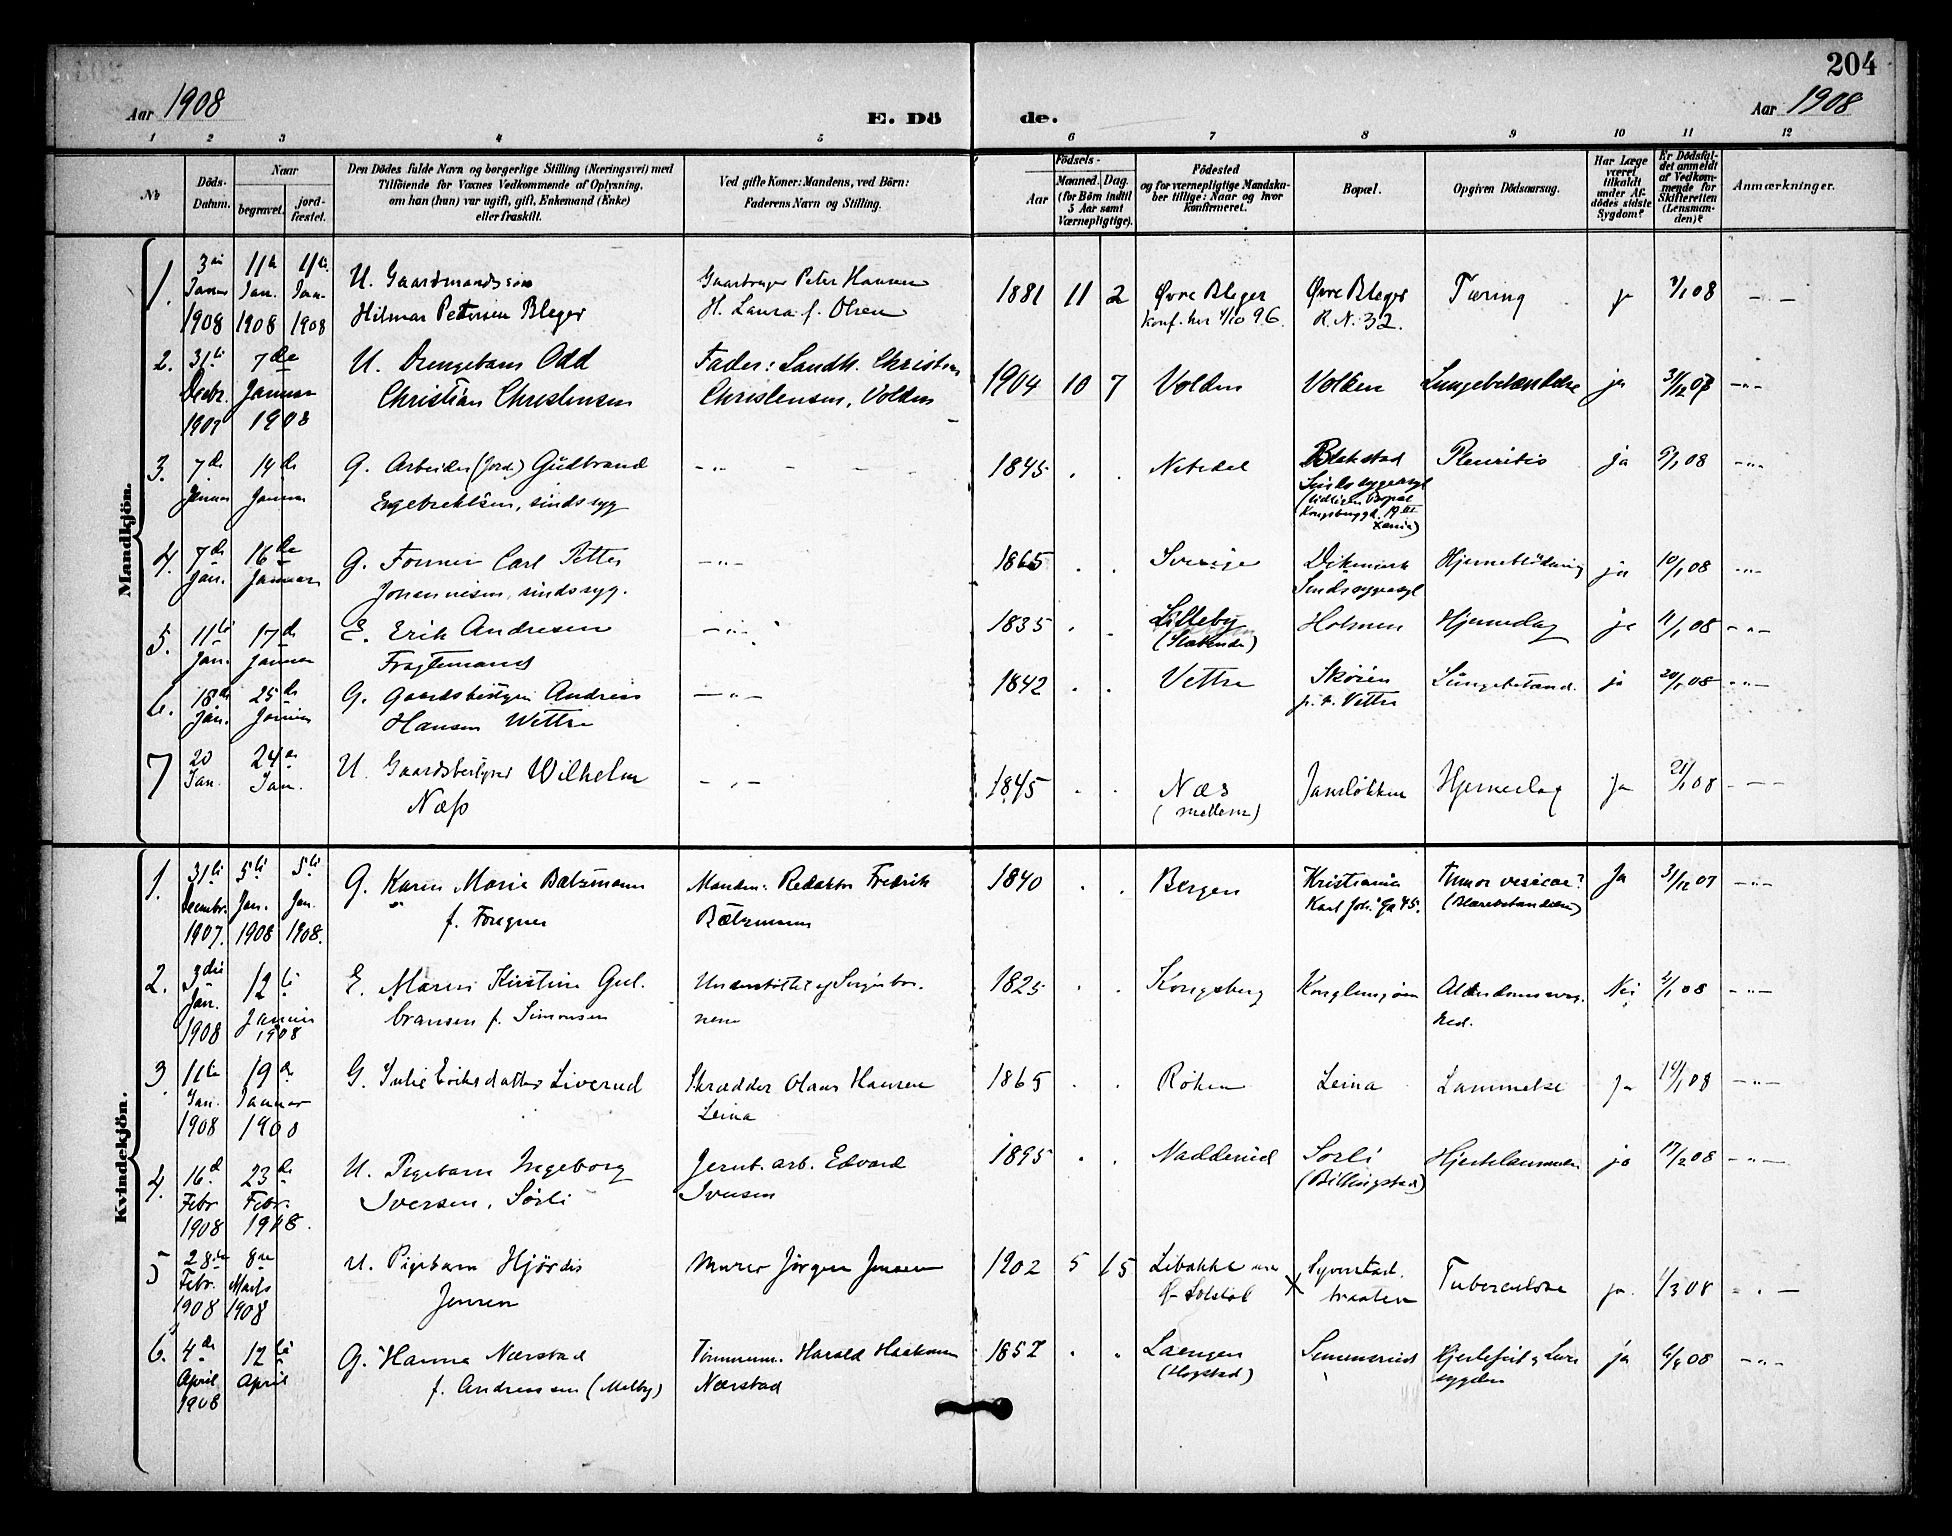 204
Aar 1908
E. Dö
de.
Aar 1908
1 2 3 4 5 6 7 8 9 10 11 12
№
Döds-
Datum.
Naar
begravet.
jord-
fæstet.
Den Dödes fulde Navn og borgerlige Stilling (Næringsvei) med
Tilföiende for Voxnes Vedkommende af Oplysning,
om han (hun) var ugift, gift, Enkemand (Enke)
eller fraskilt.
Ved gifte Koner: Mandens, ved Börn:
Faderens Navn og Stilling.
Födsels-
Aar
Maaned. Dag.
(for Börn indtil
5 Aar samt
Værnepligtige).
Födested
og for værnepligtige Mandska-
ber tillige: Naar og hvor
konfirmeret.
Bopæl.
Opgiven Dödsaarsag.
Har Læge
været
tilkaldt
under Af-
dödes sidste
Sygdom?
Er Dödsfal-
det anmeldt
af Vedkom-
mende for
Skifteretten
(Lensman-
den)?
Anmærkninger.
Mandkjön.
1. 3die 11te 11te U. Gaardmandssön Gaardbruger Peter Hansen 1881 11 2 Øvre Bleger Øvre Bleger Tæring ja 7/1 08 - -
Januar Jan. Jan. Hilmar Petersen Bleger H. Laura f. Olsen Konf. her 4/10 96. R. N. 32.
1908 1908 1908
2. 31te 7de U. Drengebarn Odd Fader: Landh. Christian 1904 10 7 Volden Volden Lungebetændelse ja 31/12 07 -"-
Decbr. Januar Christian Christensen Christensen, Volden
1907 1908
3. 7de 14de G. Arbeider (Jord.) Gudbrand -"- 1845 Nebedal Blakstad Pleuritis ja 9/1 08 -"-
Januar Januar Engebrektsen, sindssyg Sindssygeasyl
(tidligere Bopæl
Kongsbergg. 19 III
Xania)
4. 7de 16de G. Former Carl Petter -"- 1865 Sverige Dikemark Hjerneblödning ja 10/1 08 -"-
Jan. Januar Johannesen, sindssyg. Sindssygeasyl
5. 11te 17de E. Erik Andresen -"- 1835 Lilleby Holmen Hjerneslag ja 11/1 08 -"-
Jan. Januar Fragtemand (Slabende)
6. 18de 25de G. Gaardsbestyrer Andreas -"- 1842 Vettre Skøien Lungebetænd. ja 20/1 08 -"-
Jan. Januar Hansen Wettre p. v. Vettre
7 20 24de U. Gaardsbestyrer Wilhelm -"- 1845 Næs Jansløkken Hjerneslag ja 21/1 08 - -
Jan. Jan. Næss (mellem)
Kvindekjön.
1. 31te 5te 5te G. Karen Marie Bætzmann Manden: Redaktør Fredrik 1840 Bergen Kristiania Tumor vesicae? Ja 31/12 07 -"-
Decembr. Jan. Jan. f. Foregner Bætzmann Karl Joh. Ga 45. (Blærebetændelse)
1907. 1908 1908.
2. 3die 12te E. Maren Kirstine Gul- Understöttet af Sognebor- 1825 Kongsberg Konglungöen Alderdomssvag- Nei 4/1 08 -"-
Jan. Januar bransen f. Simonsen nene hed.
1908 1908
3 11te 19de G. Julie Eriksdatter Liverud Skrædder Olaus Hansen 1865 Röken Leina Lammelse Ja 14/1 08 -"-
Jan. Januar Leina
1908 1908
4. 16de 23de U. Pigebarn Ingeborg Jernb. arb. Edvard 1895 Nadderud Sørli Hjertelammelse ja 17/2 08 -"-
Febr Febr. Iversen, Sørli Iversen (Billingstad)
1908 1908.
5 28de 8de U. Pigebarn Hjördis Murer Jörgen Jensen 1902 5 15 Libakke Syverstad- Tuberculose ja. 1/3 08 - " -
Febr. Marts Jensen X braaten
1908 1908
6. 4de 12te G. Hanna Nærstad Tömmerm. Harald Haakonsen 1852 Laengen Semensrud Hjertefeil og Lever ja 6/4 08 -"-
April April f. Andreassen (Melby) Nærstad (Hogstad) sygdom
1908